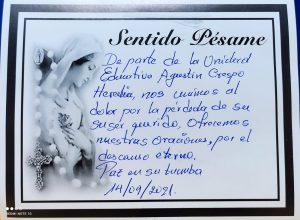 Sentido Pésame
De parte de la Unidad
Educativa Agustin Crespo
Heredia, nos unimos al
dolor por la pérdida de su
ser querido, Ofrecemos
nuestras oraciones, por el
descanso eterno.
Paz en su tumba
14/09/2021.